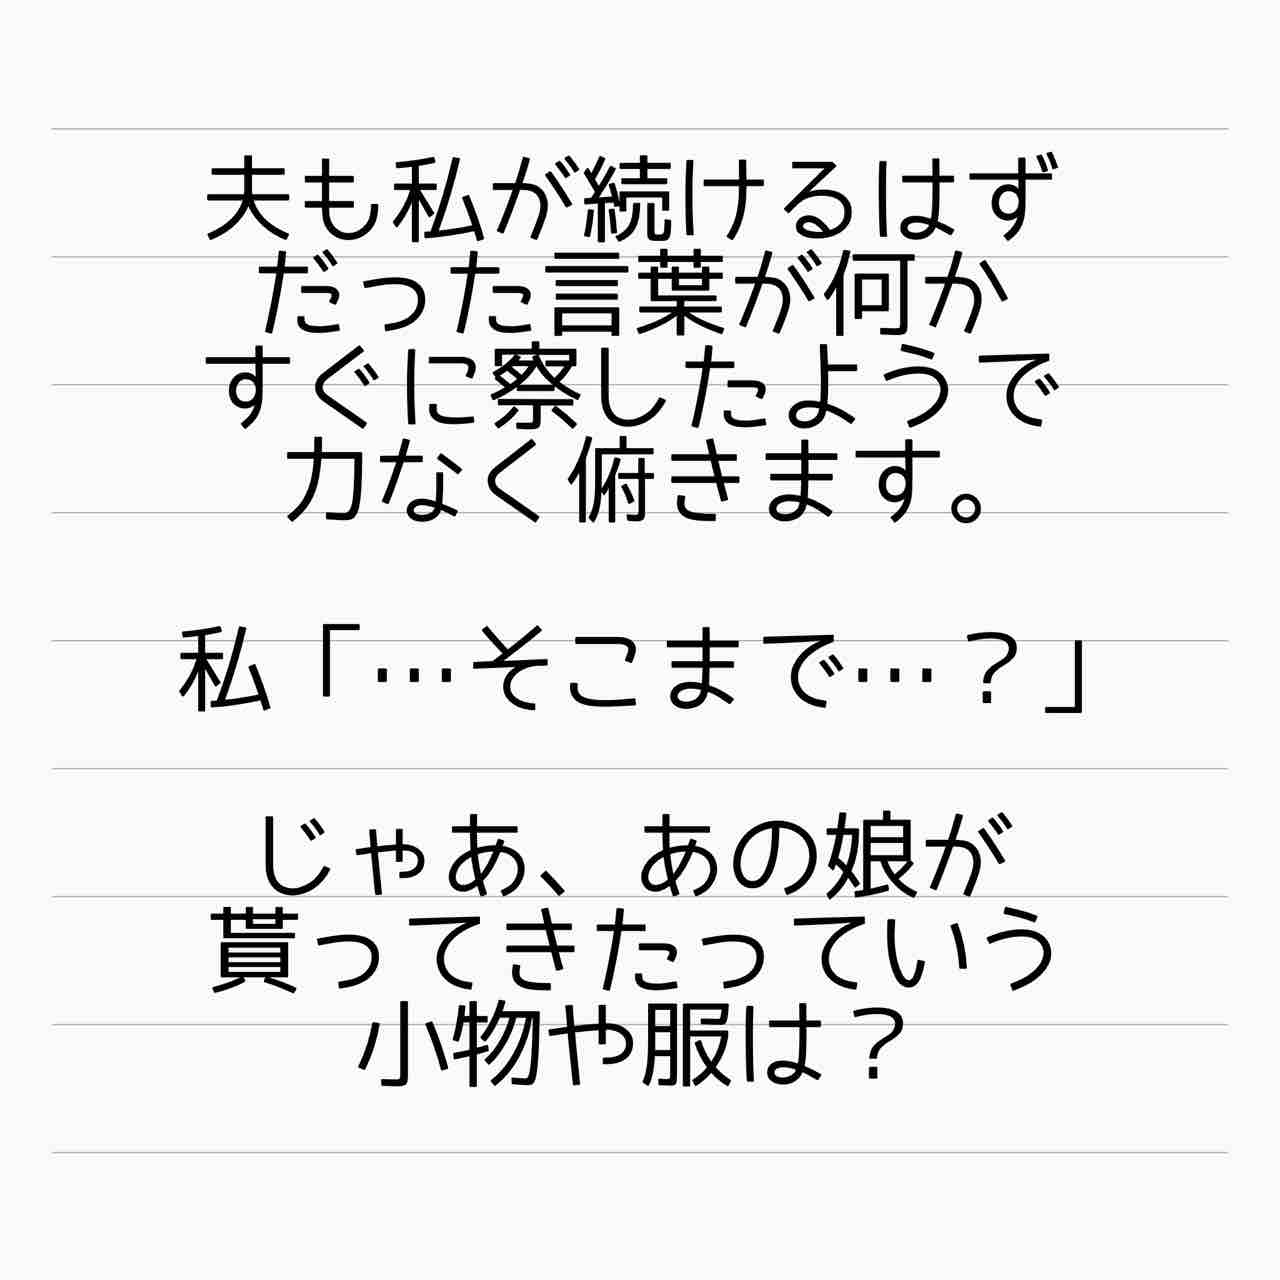 夫も私が続けるはず
だった言葉が何か
すぐに察したようで
力なく俯きます。
私「…そこまで…？」
じゃあ、あの娘が
貰ってきたっていう
小物や服は？